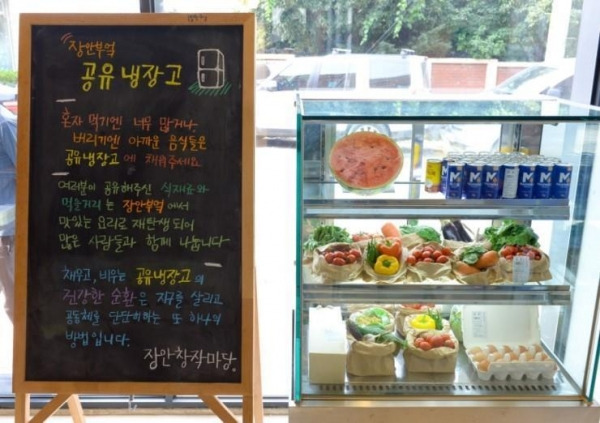 장안부엌
공유냉장고
혼자 먹기엔 너무 많거나
버리기엔 아까운 음식들은
공유냉장고에 채워주세요
여러분이 공유해주신 식재료와
먹을거리는 장안부엌에서
맛있는 요리로 재탄생되어
많은 사람들과 함께 나눕니다
채우고, 비우는 공유냉장고의
건강한 순환은 지구를 살리고
공동체를 단단히하는 또 하나의
방법입니다.
장안창작마당.
M
M
M
M